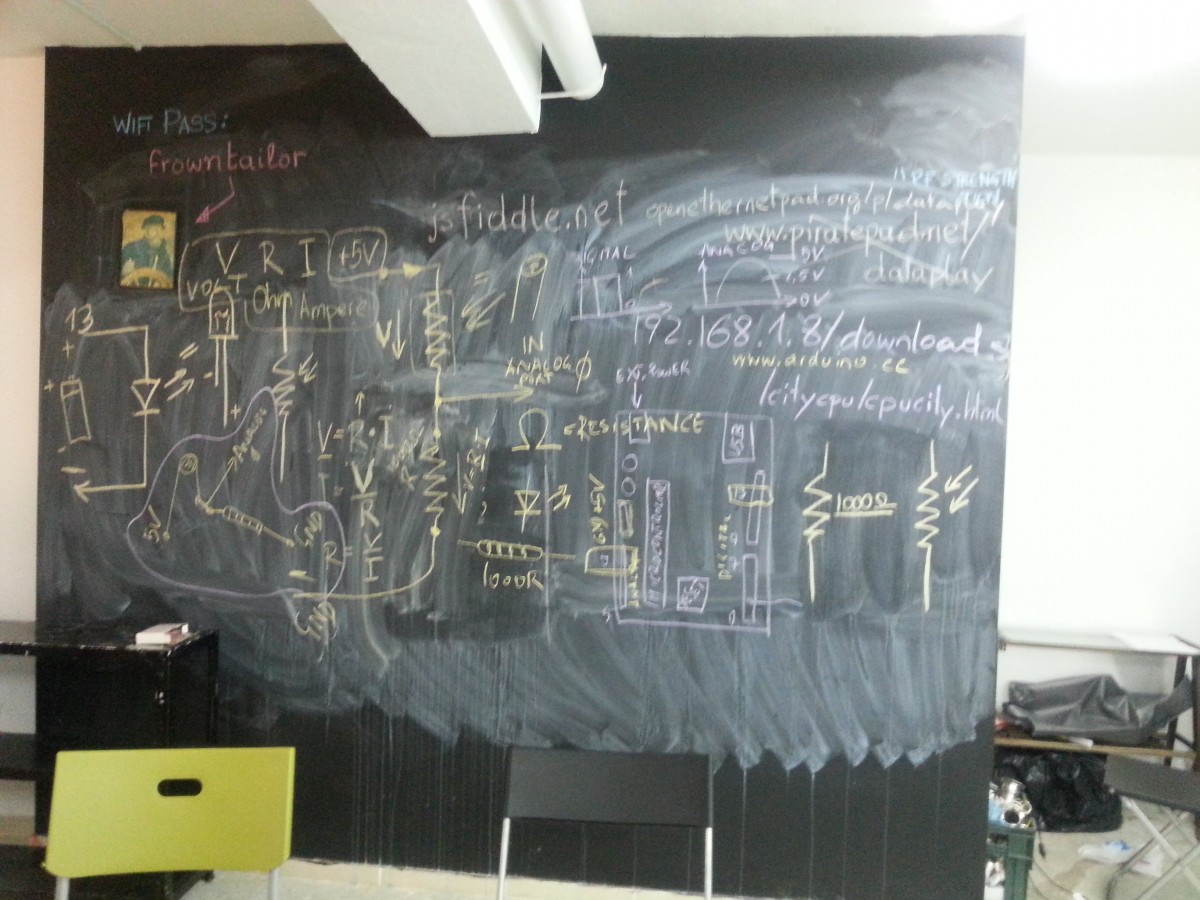 WIFI PASS:
frowntailor
"RF STRENGTH
jsfiddle.net
openethernetpad.org/p/dataplay
www.piratepad.net/
dataplay
V R I
+5V
VOLT
Ohm
Ampere
ANALOG
5V
0V
13
+
+
-
-
+
V
IN
ANALOG
PORT
0
192.168.1.8/downloads
www.arduino.cc
EXT. POWER
/citycpu/cpucity.html
Ω = RESISTANCE
V=R·I
V=R·I
Analog
5V
GND
GND
R
1000R
GND +5V
MICROCONTROLLER
DIGITAL
5
0
1000Ω